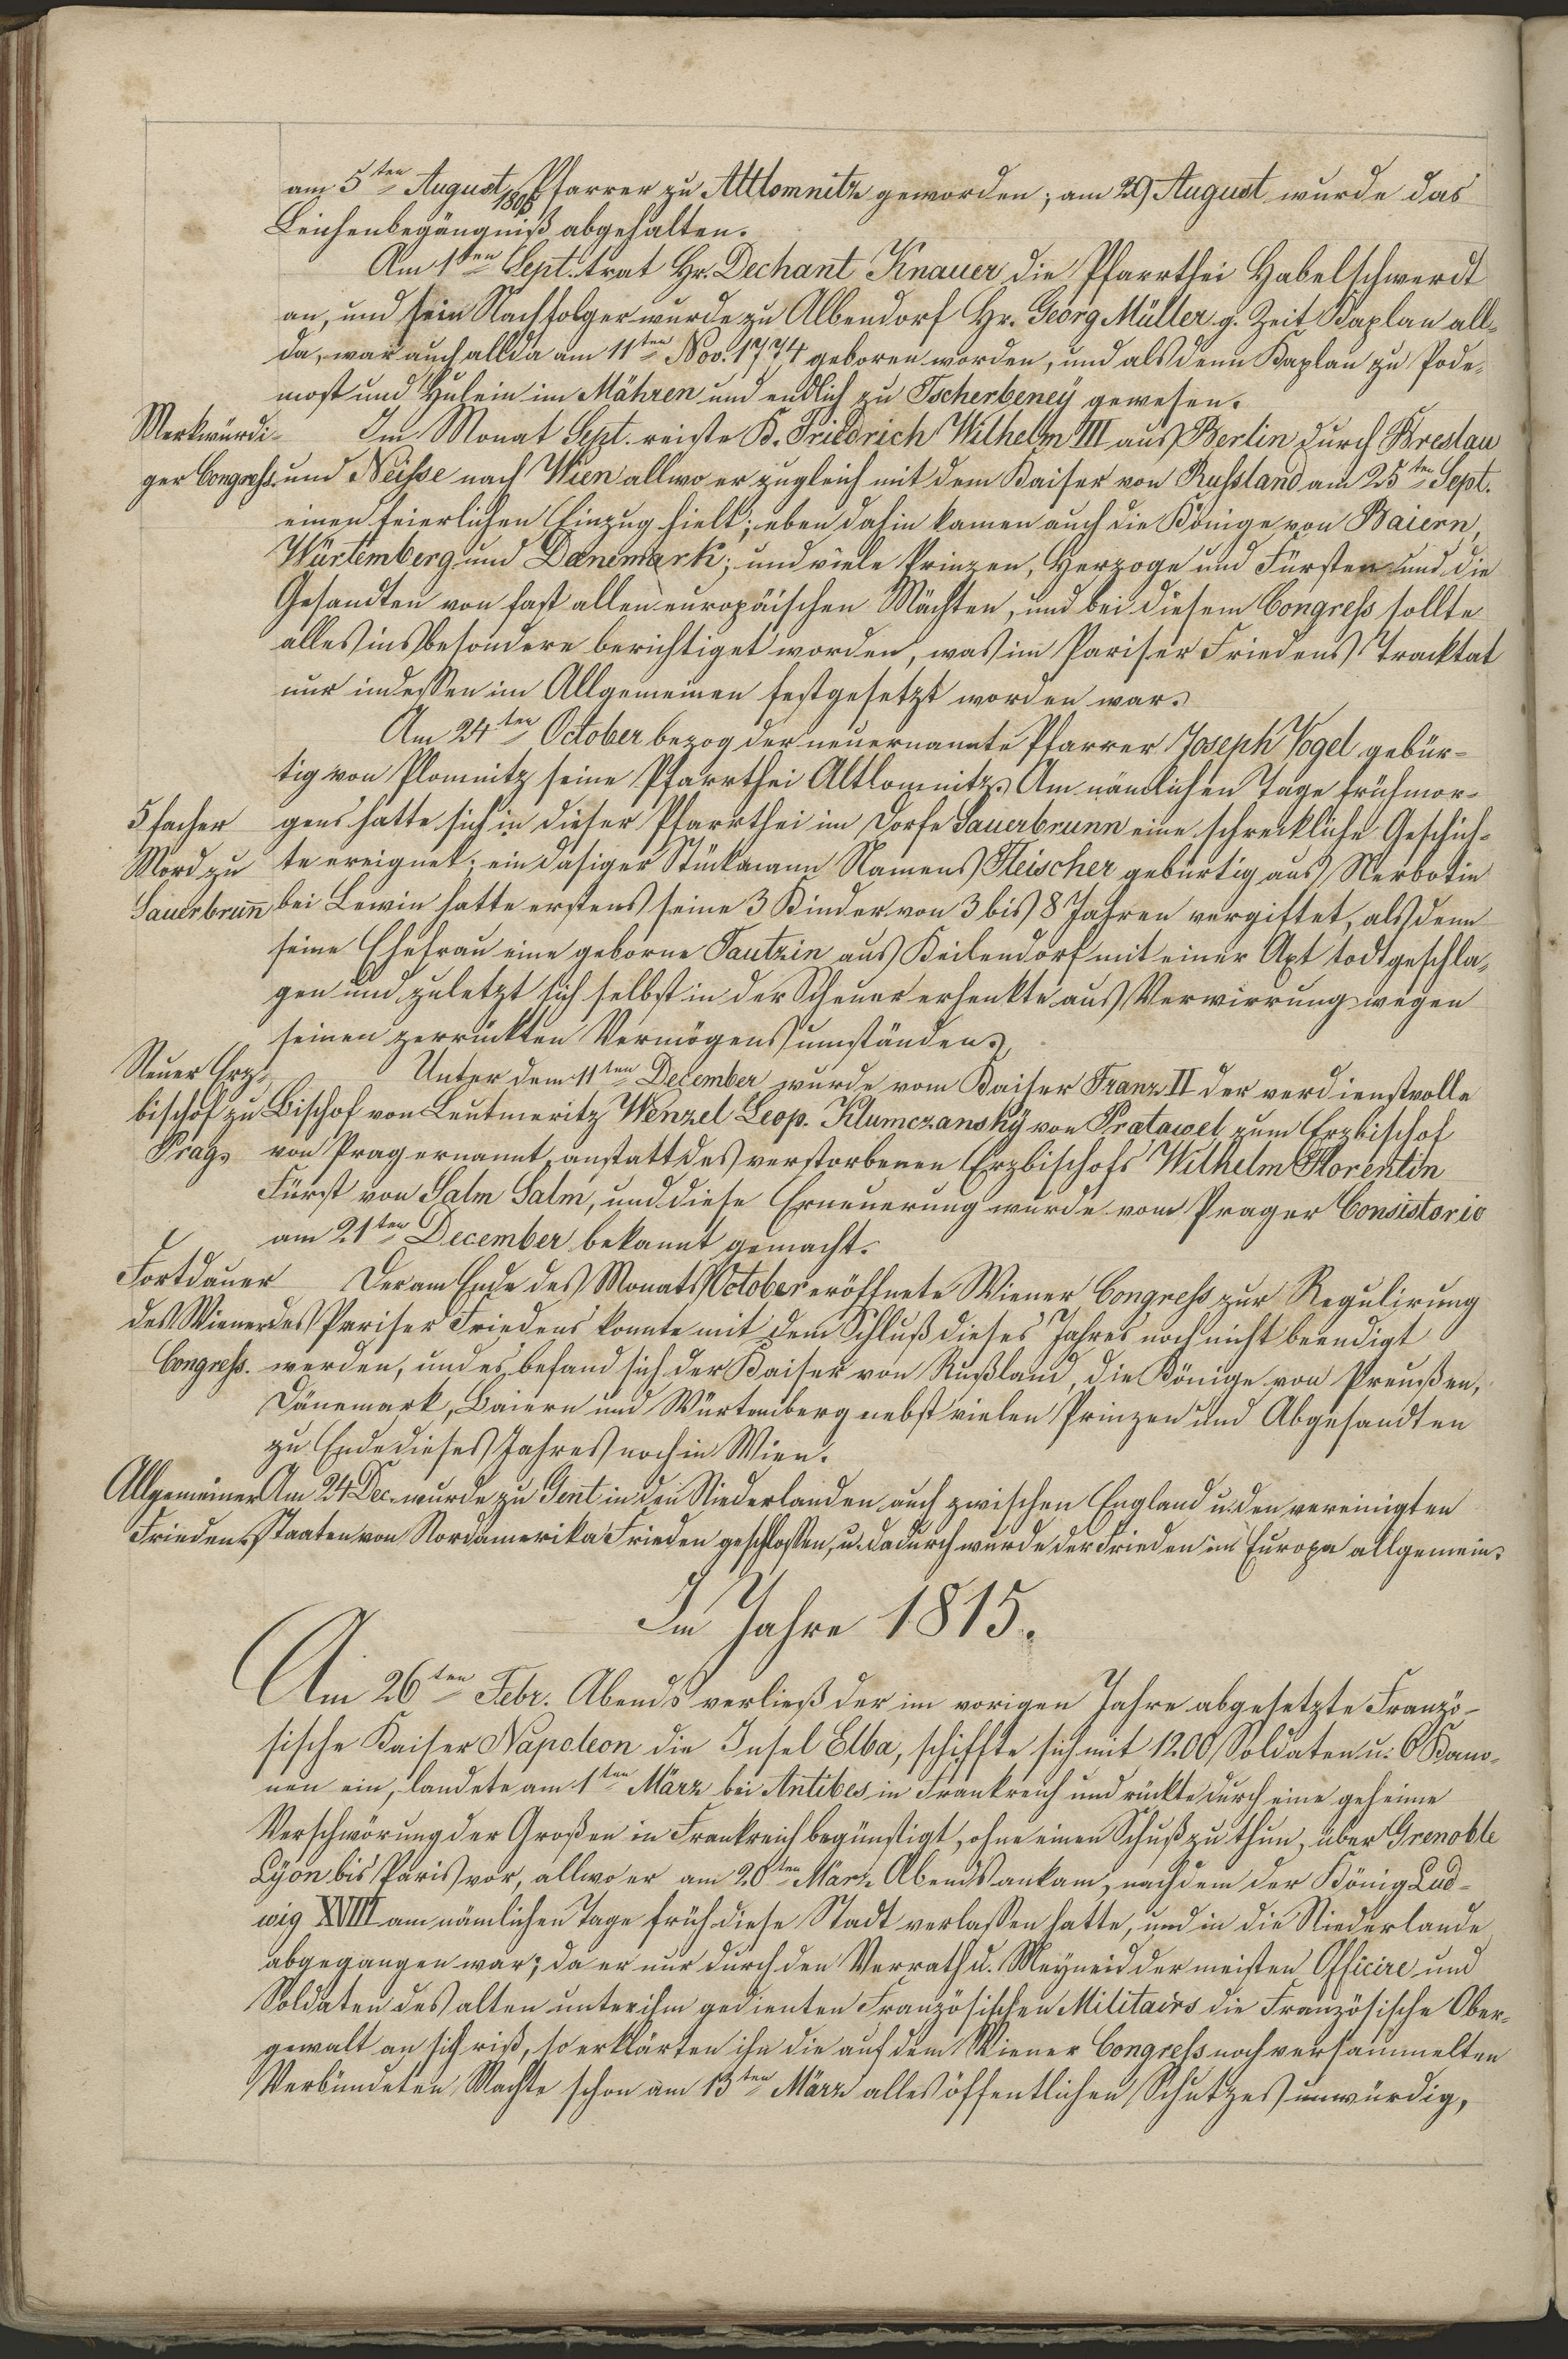 am 5ten August 1805 Pfarrer zu Altlomnitz geworden; am 29 August wurde das
Leichenbegängniß abgehalten.
Am 1ten Sept. trat Hr. Dechant Knauer die Pfarrthei Habelschwerdt
an, und sein Nachfolger wurde zu Albendorf Hr. Georg Müller z. Zeit Kaplan all-
da, war auch allda am 11ten Nov. 1774 geboren worden, und alsdenn Kaplan zu Pode-
most und Hulein im Mähren und endlich zu Tscherbeney gewesen.
Merkwürdi-
ger Congress.
Im Monat Sept. reiste K. Friedrich Wilhelm III aus Berlin durch Breslau
und Neisse nach Wien allwo er zugleich mit dem Kaiser von Russland am 25ten Sept.
einen feierlichen Einzug hielt; eben dahin kamen auch die Könige von Baiern,
Würtemberg und Danemark; und viele Prinzen, Herzoge und Fürsten und die
Gesandten von fast allen europäischen Mächten, und bei diesem Congress sollte
alles insbesondere berichtiget worden, was im Pariser Friedens Tracktat
nur indessen im Allgemeinen festgesetzt worden war.
Am 24ten October bezog der neuernannte Pfarrer Joseph Vogel gebür-
tig von Plomnitz seine Pfarrthei Altlomnitz. Am nämlichen Tage frühmor-
5 facher
Mord zu
Sauerbrun̄
gens hatte sich in dieser Pfarrthei im Dorfe Sauerbrunn eine schreckliche Geschich-
te ereignet; ein dasiger Stückmann Namens Fleischer gebürtig aus Nerbotin
bei Lewin hatte erstens seine 3 Kinder von 3 bis 8 Jahren vergiftet, alsdenn
seine Ehefrau eine geborne Tautzin aus Keilendorf mit einer Axt todtgeschla-
gen und zuletzt sich selbst in der Scheuer erhenkte aus Verwirrung wegen
seinen zerrückten Vermögensumständen.
Neuer Erz-
bischof zu
Prag.
Unter dem 11ten December wurde vom Kaiser Franz II der verdienstvolle
Bischof von Leutmeritz Wenzel Leop. Klumczansky von Pratawel zum Erzbischof
von Prag ernannt, anstatt des verstorbenen Erzbischofs Wilhelm Florentin
Fürst von Salm Salm, und diese Erneuerung wurde vom Prager Consistorio
am 21ten December bekannt gemacht.
Fortdauer
des Wiener
Congress.
Der am Ende des Monats October eröffnete Wiener Congress zur Regulirung
des Pariser Friedens konnte mit dem Schluß dieses Jahres noch nicht beendigt
werden, und es befand sich der Kaiser von Rußland, die Könige von Preußen,
Dänemark, Baiern und Würtemberg nebst vielen Prinzen und Abgesandten
zu Ende dieses Jahres noch in Wien.
Allgemeiner
Frieden.
Am 24 Dec. wurde zu Gent in den Niederlanden auch zwischen England u. den vereinigten
Staaten von Nordamerika Frieden geschlossen, u. dadurch wurde der Frieden in Europa allgemein.
Im Jahre 1815.
Am 26ten Febr. Abends verließ der im vorigen Jahre abgesetzte Franzö-
sische Kaiser Napoleon die Insel Elba, schiffte sich mit 1200 Soldaten u. 6 Kano-
nen ein, landete am 1ten März bei Antibes in Frankreich und rückte durch eine geheime
Verschwörung der Großen in Frankreich begünstigt, ohne einen Schuß zu thun, über Grenoble
Lyon bis Paris vor, allwo er am 20ten März Abends ankam, nachdem der König Lud-
wig XVIII am nämlichen Tage früh diese Stadt verlassen hatte, und in die Niederlande
abgegangen war; da er nur durch den Verrath u. Meyneid der meisten Officire und
Soldaten des alten unter ihm gedienten Französischen Militairs die Französische Ober-
gewalt an sich riß, so erklärten ihn die auf dem Wiener Congress noch versammelten
Verbündeten Mächte schon am 13ten März alles öffentlichen Schutzes unwürdig,